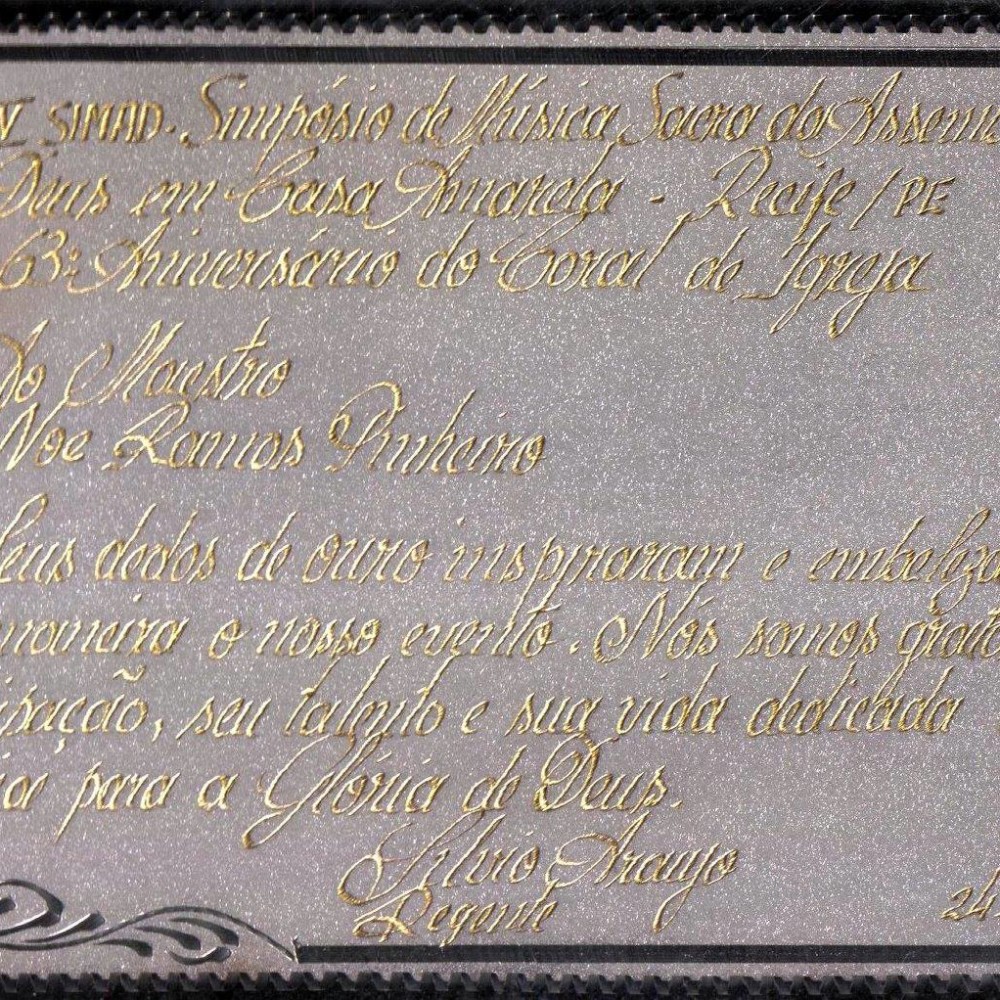 V SIMAD. Simpósio de Música Sacra da Assem
Deus em Casa Amarela - Recife/PE
63º Aniversário do Coral da Igreja
Ao Maestro
Noé Ramos Pinheiro
eus dedos de ouro inspiraram e embeleza
maneira o nosso evento. Nós somos grato
ipação, seu talento e sua vida dedicada
para a Glória de Deus.
Silvio Araujo
Regente
24